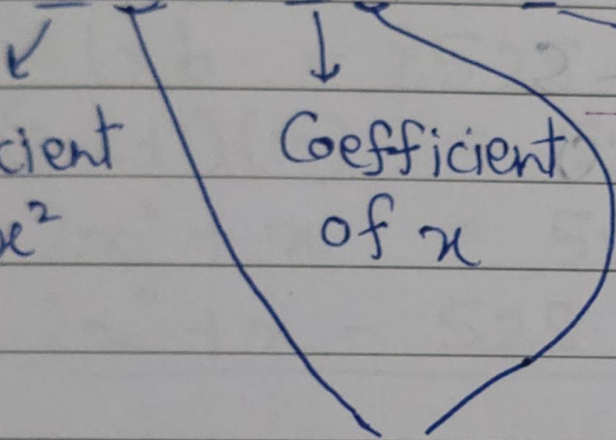 cient Coefficient
x² of x